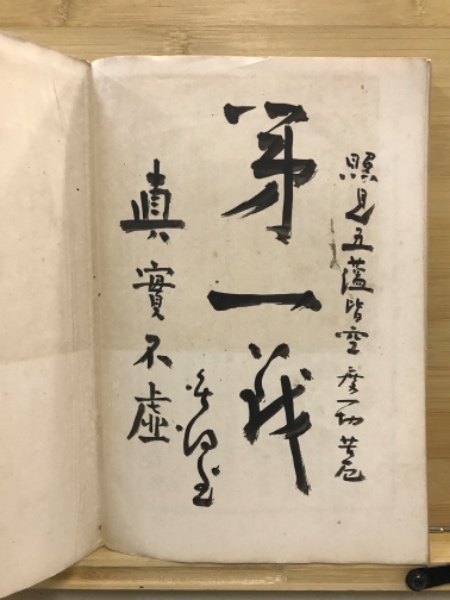 照見五蘊皆空度一切苦厄
第一義
眞實不虛